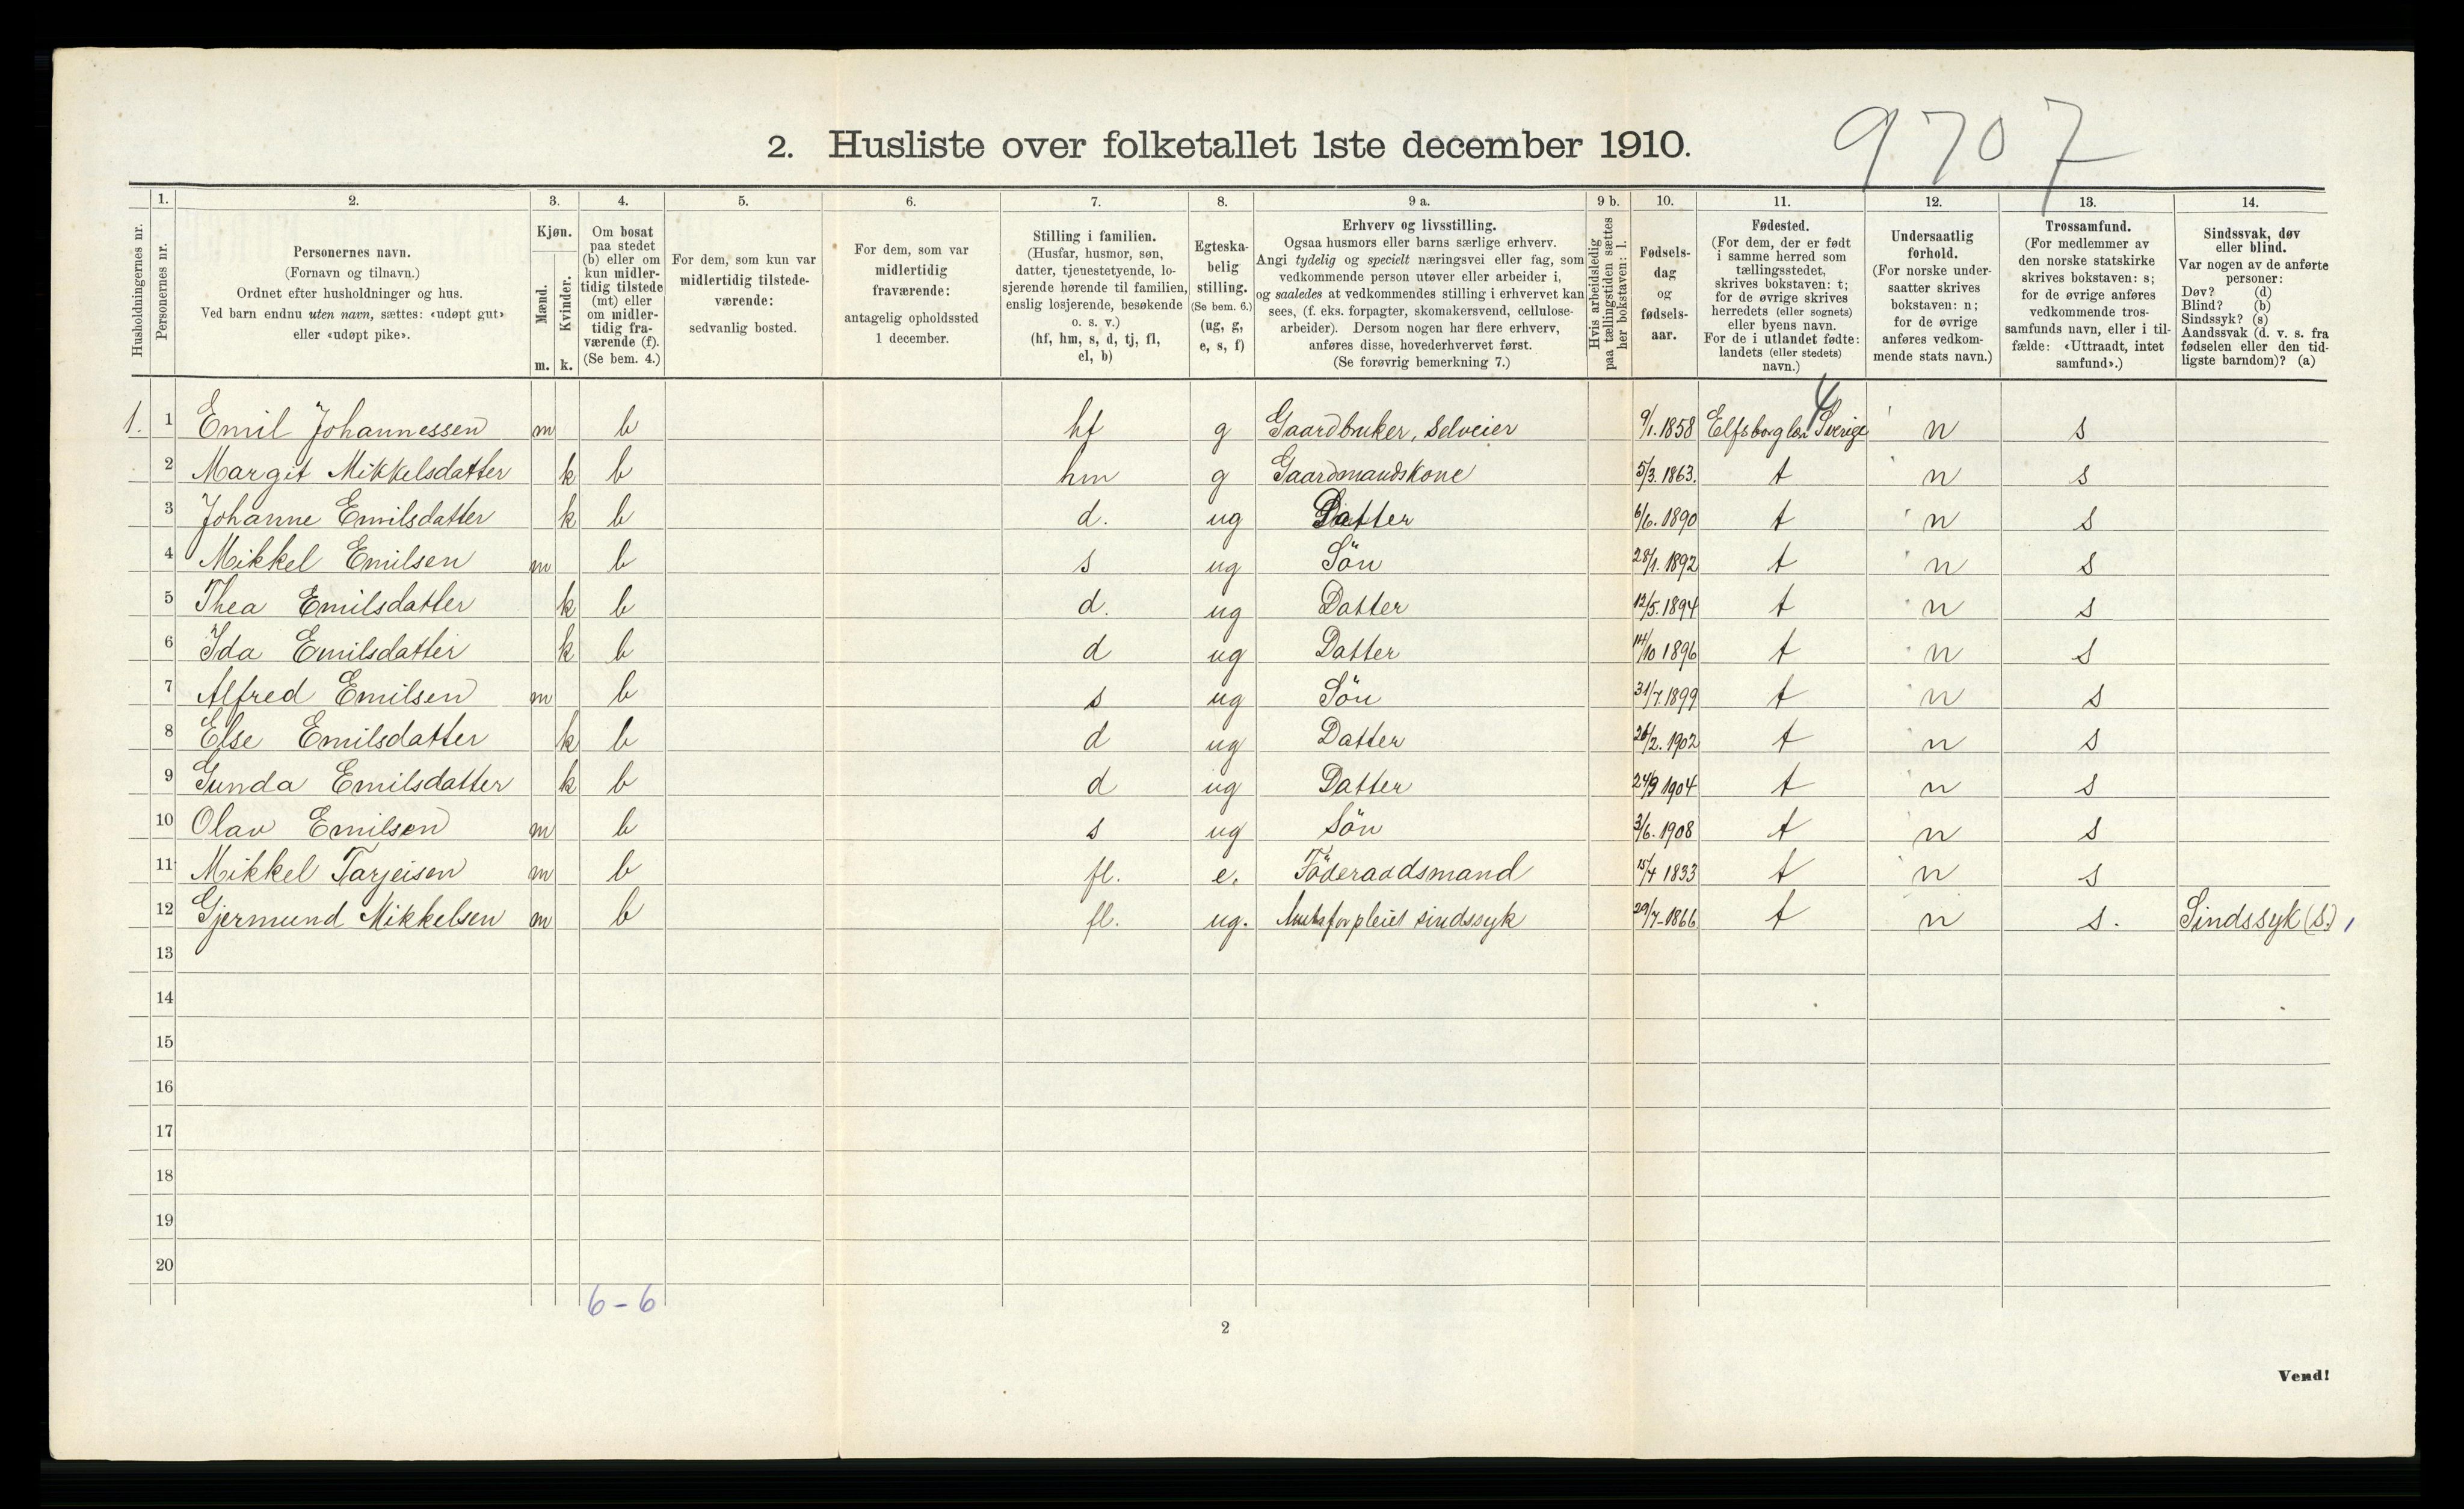 9707
2. Husliste over folketallet 1ste december 1910.
1. 2. 3. 4. 5. 6. 7. 8. 9 a. 9 b. 10. 11. 12. 13. 14.
Husholdningernes nr.
Personernes nr.
Personernes navn.
(Fornavn og tilnavn.)
Ordnet efter husholdninger og hus.
Ved barn endnu uten navn, sættes: «udøpt gut»
eller «udøpt pike».
Kjøn.
Mænd.
Kvinder.
m. k.
Om bosat
paa stedet
(b) eller om
kun midler-
tidig tilstede
(mt) eller
om midler-
tidig fra-
værende (f).
(Se bem. 4.)
For dem, som kun var
midlertidig tilstede-
værende:
sedvanlig bosted.
For dem, som var
midlertidig
fraværende:
antagelig opholdssted
1 december.
Stilling i familien.
(Husfar, husmor, søn,
datter, tjenestetyende, lo-
sjerende hørende til familien,
enslig losjerende, besøkende
o. s. v.)
(hf, hm, s, d, tj, fl,
el, b)
Egteska-
belig
stilling.
(Se bem. 6.)
(ug, g,
e, s, f)
Erhverv og livsstilling.
Ogsaa husmors eller barns særlige erhverv.
Angi tydelig og specielt næringsvei eller fag, som
vedkommende person utøver eller arbeider i,
og saaledes at vedkommendes stilling i erhvervet kan
sees, (f. eks. forpagter, skomakersvend, cellulose-
arbeider). Dersom nogen har flere erhverv,
anføres disse, hovederhvervet først.
(Se forøvrig bemerkning 7.)
Hvis arbeidsledig
paa tællingstiden sættes
her bokstaven: l.
Fødsels-
dag
og
fødsels-
aar.
Fødested.
(For dem, der er født
i samme herred som
tællingsstedet,
skrives bokstaven: t;
for de øvrige skrives
herredets (eller sognets)
eller byens navn.
For de i utlandet fødte:
landets (eller stedets)
navn.)
Undersaatlig
forhold.
(For norske under-
saatter skrives
bokstaven: n;
for de øvrige
anføres vedkom-
mende stats navn.)
Trossamfund.
(For medlemmer av
den norske statskirke
skrives bokstaven: s;
for de øvrige anføres
vedkommende tros-
samfunds navn, eller i til-
fælde: «Uttraadt, intet
samfund».)
Sindssvak, døv
eller blind.
Var nogen av de anførte
personer:
Døv? (d)
Blind? (b)
Sindssyk? (s)
Aandssvak (d. v. s. fra
fødselen eller den tid-
ligste barndom)? (a)
4
1. 1 Emil Johannessen m b hf g Gaardbruker, Selveier 9/1.1858 Elfsborg len Sverige n s
2 Margit Mikkelsdatter k b hm g Gaardmandskone 5/3.1863. t n s
3 Johanne Emilsdatter k b d. ug Datter 6/6.1890 t n s
4 Mikkel Emilsen m b s ug Sön 28/1.1892 t n s
5 Thea Emilsdatter k b d. ug Datter 12/5.1894 t n s
6 Ida Emilsdatter k b d ug Datter 14/10 1896 t n s
7 Alfred Emilsen m b s ug Sön 31/7.1899 t n s
8 Else Emilsdatter k b d ug Datter 26/2.1902 t n s
9 Gunda Emilsdatter k b d ug Datter 24/9 1904 t n s
10 Olav Emilsen m b s ug Sön 3/6.1908 t n s
11 Mikkel Tarjeisen m b fl. e. Föderaadsmand 15/4 1833 t n s
12 Gjermund Mikkelsen m b fl. ug. Amtsforpleiet sindssyk 29/7-1866 t n s. Sindssyk (S.)
13
14
15
16
17
18
19
20
6-6
2
Vend!